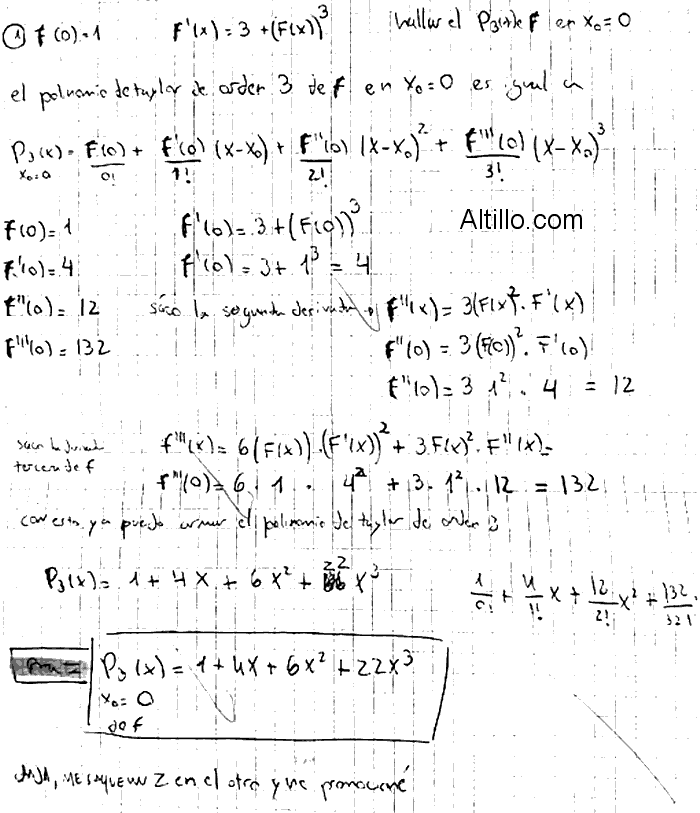 ① f(0)=1 f'(x) = 3 + (F(x))³ hallar el P₃ de f en x₀=0
el polinomio de taylor de orden 3 de f en x₀=0 es igual a
P₃(x) = F(0)/0! + f'(0)/1! (x-x₀) + f''(0)/2! (x-x₀)² + f'''(0)/3! (x-x₀)³
x₀=0
f(0)=1 f'(0)= 3+(F(0))³ Altillo.com
f'(0)=4 f'(0)= 3+ 1³ = 4
f''(0)= 12 sáco la segunda derivada → f''(x) = 3(F(x)². F'(x)
f'''(0)= 132 f''(0) = 3(F(0))². F'(0)
f''(0)= 3 1² . 4 = 12
saco la derivada f'''(x)= 6(F(x)).(F'(x))² + 3F(x)². F''(x)=
tercera de f f'''(0)= 6 . 1 . 4² + 3. 1² . 12 = 132
con esto ya puedo armar el polinomio de taylor de orden 3
P₃(x)= 1 + 4x + 6x² + 22 x³ 1/0! + 4/1! x + 12/2! x² + 132/321
P₃(x) = 1+4x+6x²+22x³
x₀= 0
de f
en el otro y me promocioné